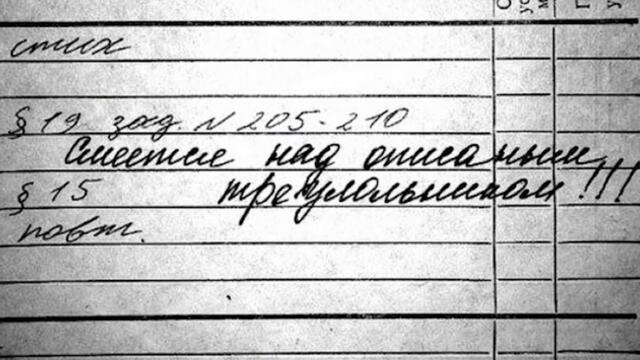 стих
§ 19 зад. N 205-210
Смеется над описаным
§ 15 треугольником!!!
повт.